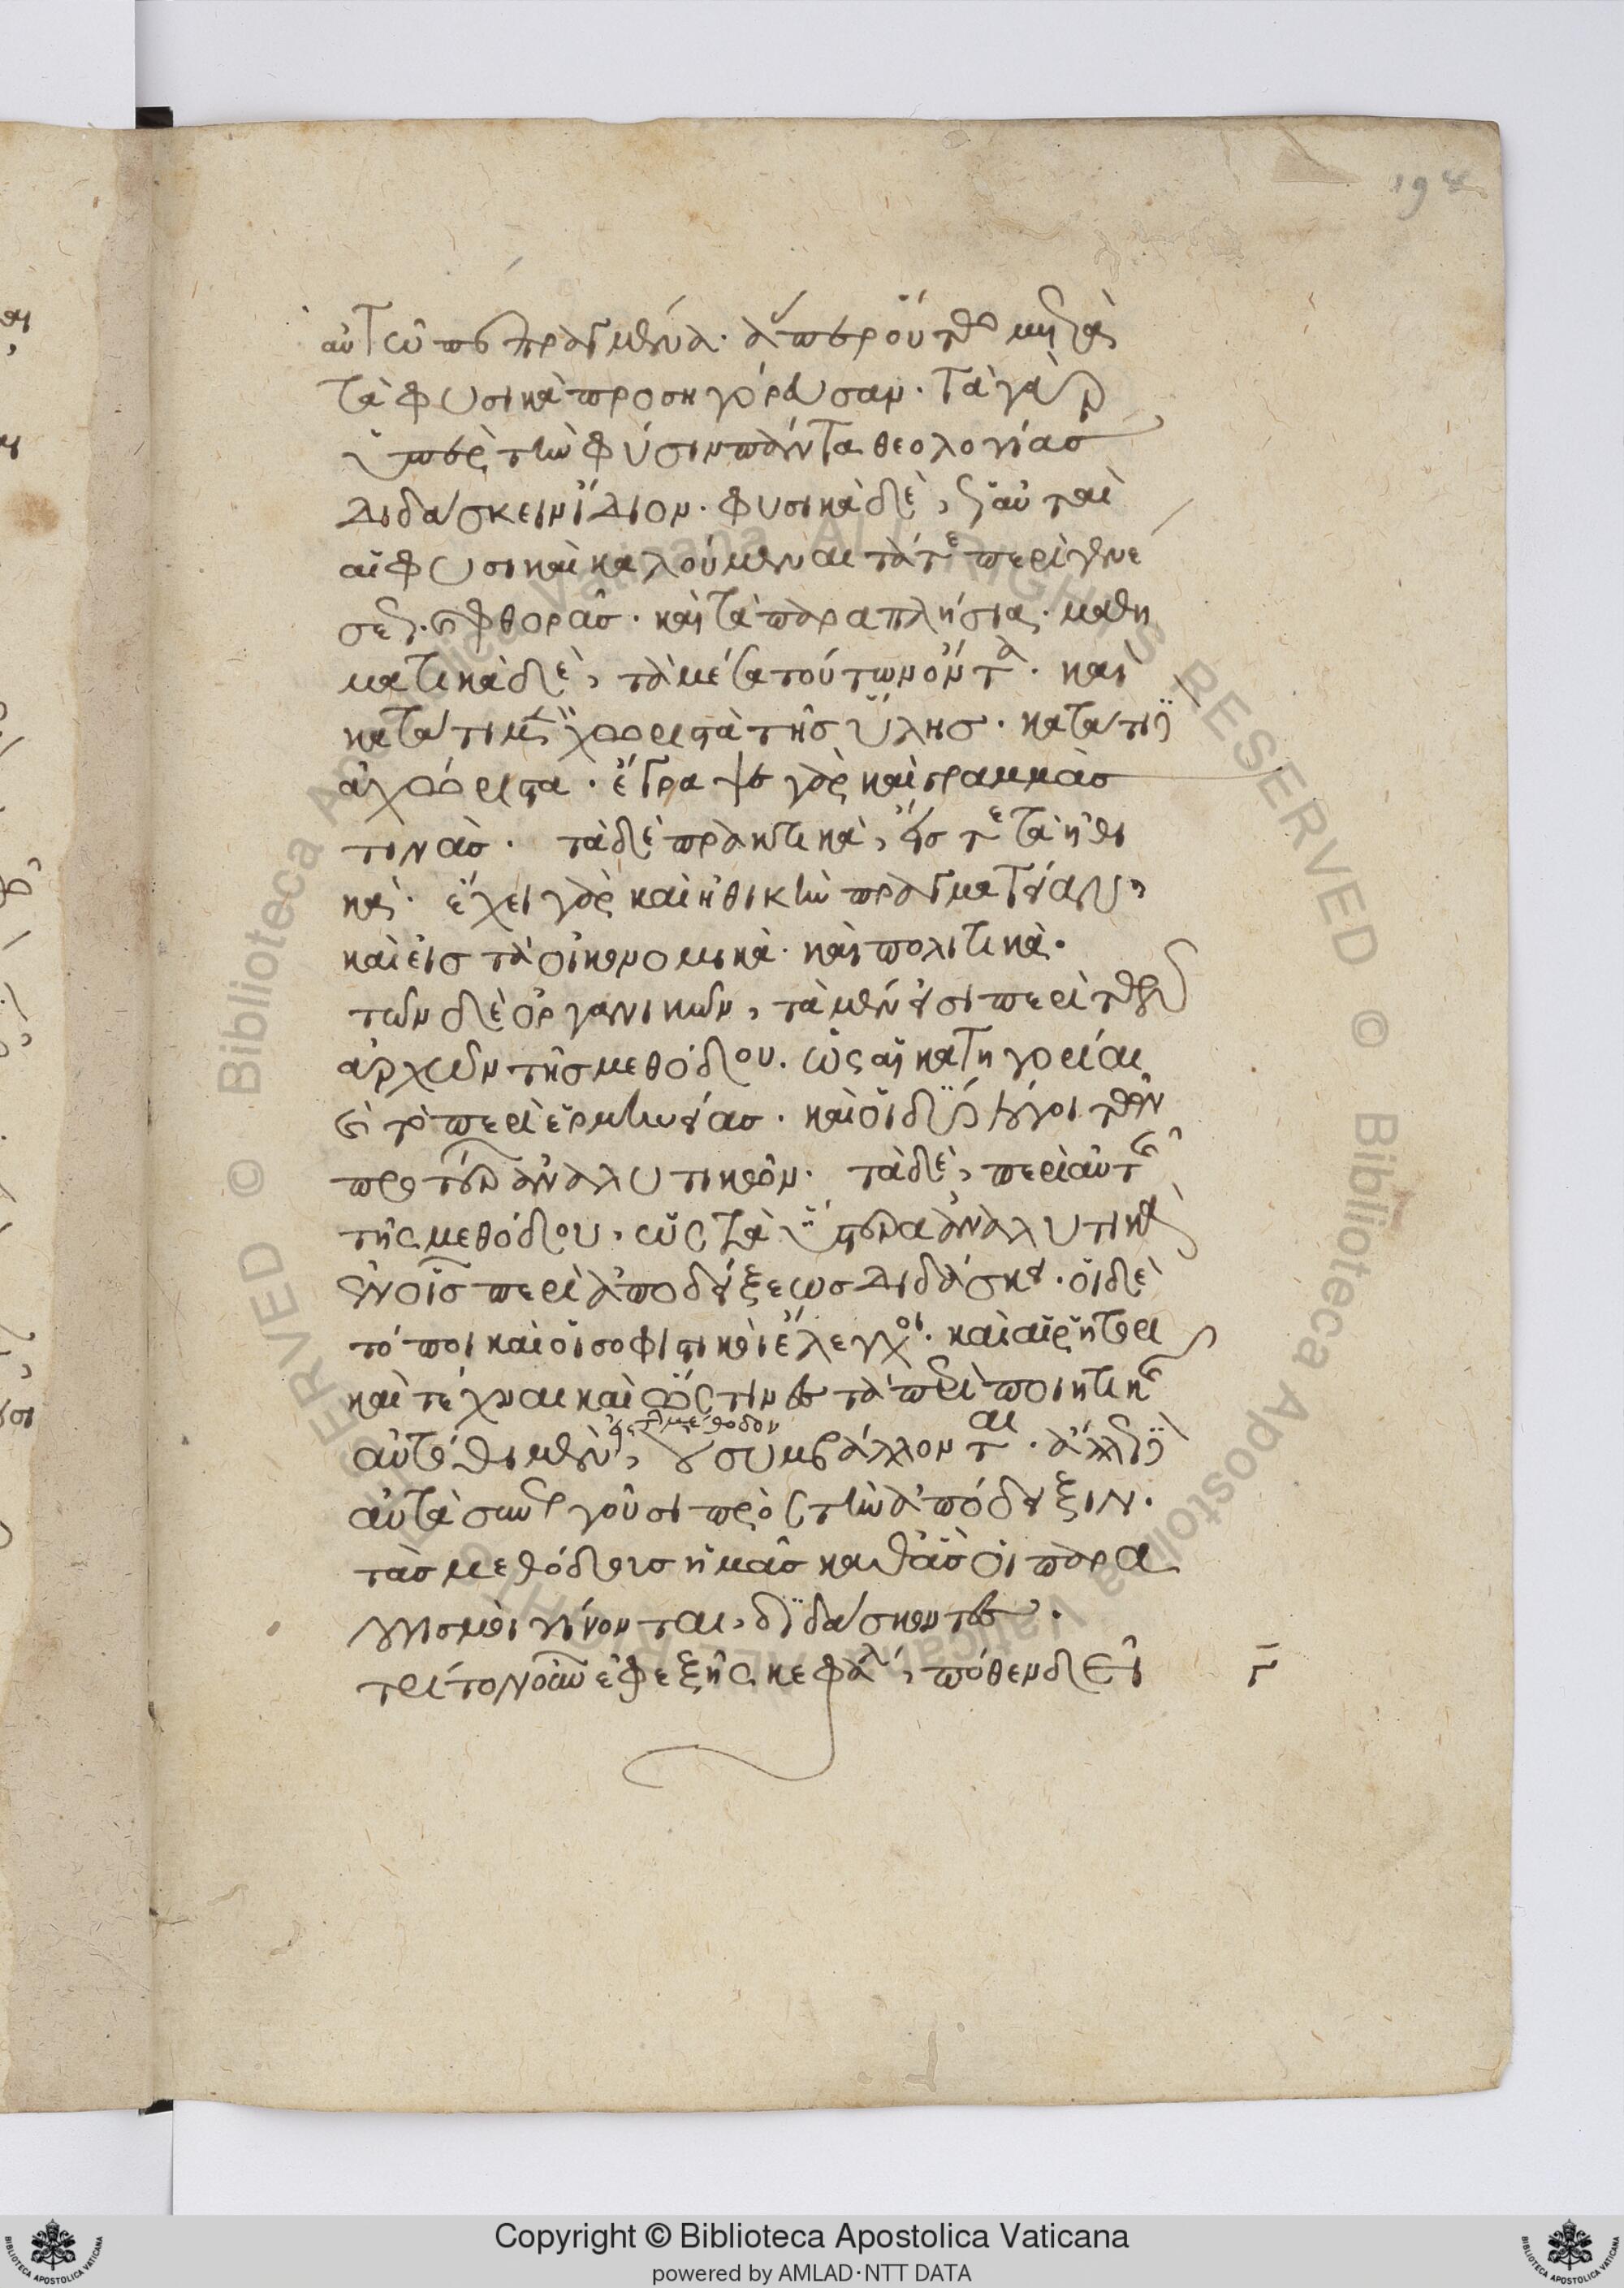 194
αὐτῶ πεπραγμένα. ἅπερ οὕτω μετὰ
τὰ φυσικὰ προσηγόρευσαν. τὰ γὰρ
ὑπὲρ τὴν φύσιν πάντα θεολογίας
διδάσκειν ἴδιον. φυσικὰ δὲ, αὐταὶ
αἱ φυσικαὶ καλούμεναι τά τε περὶ γενέ
σεως καὶ φθορᾶς. καὶ τὰ παραπλήσια. μαθη
ματικὰ δὲ, τὰ μεταξὺ τούτων ὄντα. καὶ
κατά τι μὲν χωριστὰ τῆς ὕλης. κατά τι δὲ
ἀχώριστα. ἔγραψε γὰρ καὶ γραμμὰς
τινάς. τὰ δὲ πρακτικὰ, εἴς τε τὰ ἠθι
κὰ. ἔχει γὰρ καὶ ἠθικὴν πραγματείαν,
καὶ εἰς τὰ οἰκονομικὰ. καὶ πολιτικὰ.
τῶν δὲ ὀργανικῶν, τὰ μέν εἰσι περὶ τῶν
ἀρχῶν τῆς μεθόδου. ὡς αἱ κατηγορίαι
καὶ τὸ περὶ ἑρμηνείας. καὶ οἱ δύο λόγοι τῶν
προτέρων ἀναλυτικῶν. τὰ δὲ, περὶ αὐτῆς
τῆς μεθόδου, ὡς τὰ ὕστερα ἀναλυτικὰ
ἐν οἷς περὶ ἀποδείξεως διδάσκει. οἱ δὲ
τόποι καὶ οἱ σοφιστικοὶ ἔλεγχοι. καὶ αἱ ῥητορι
καὶ τέχναι καὶ ὥς τινες τὰ περὶ ποιητικῆς
εἰς τὴν μέθοδον
αὐτόθι μὲν, οὐ συμβάλλονται. ἄλλως δὲ
αὐτὰ συνεργοῦσι πρὸς τὴν ἀπόδειξιν.
τὰς μεθόδους ἡμᾶς καθ' ἃς οἱ παρα
λογισμοὶ γίνονται, διδάσκοντες.
τρίτον οὖν ἐφεξῆς κεφάλαιον, πόθεν δεῖ
γ
Copyright © Biblioteca Apostolica Vaticana
powered by AMLAD·NTT DATA